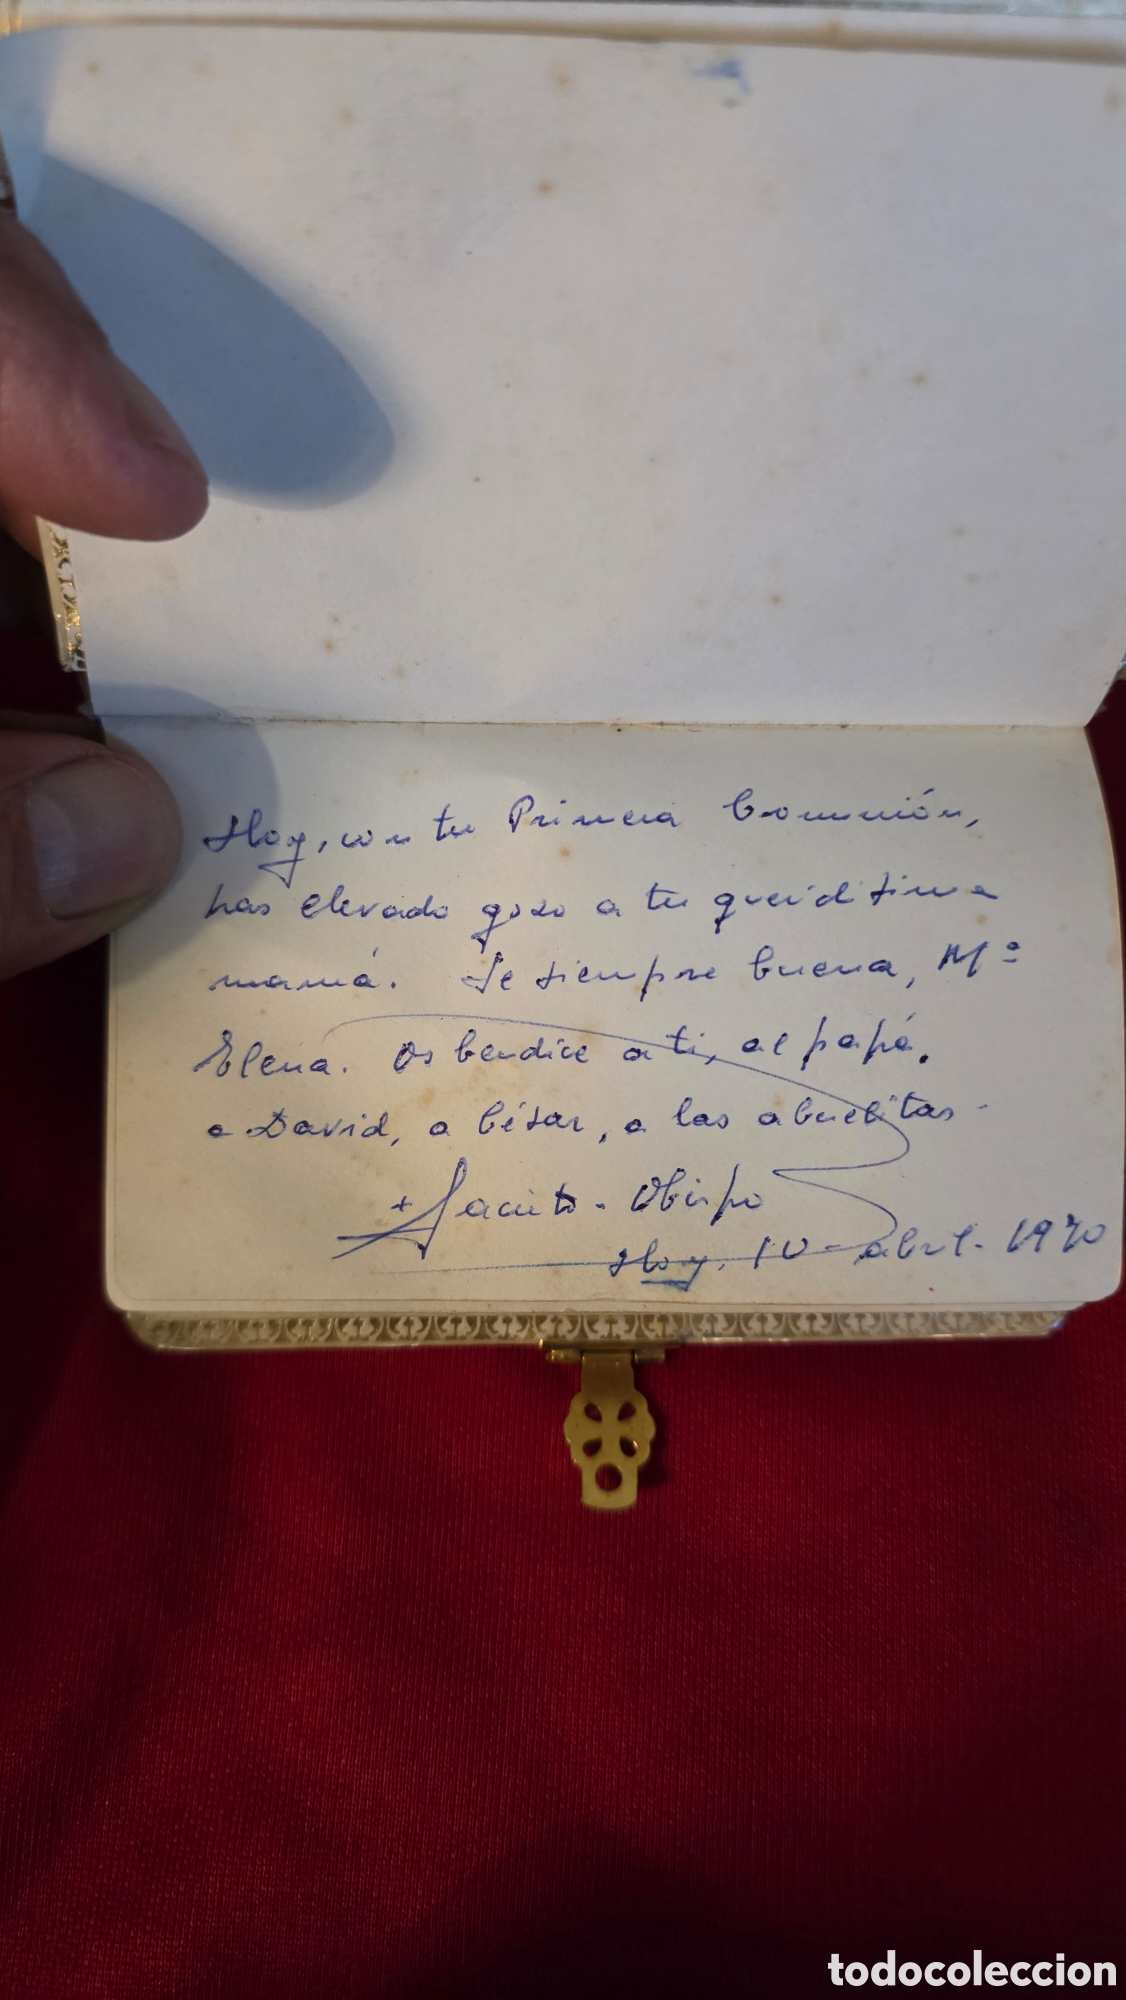 Hoy, con tu Primera Comunión,
has elevado gozo a tu queridísima
mamá. Se siempre buena, Mª
Elena. Os bendice a ti, al papá,
a David, a César, a las abuelitas -
+ Jacinto - Obispo
Hoy, 10 - abril - 1970
todocoleccion